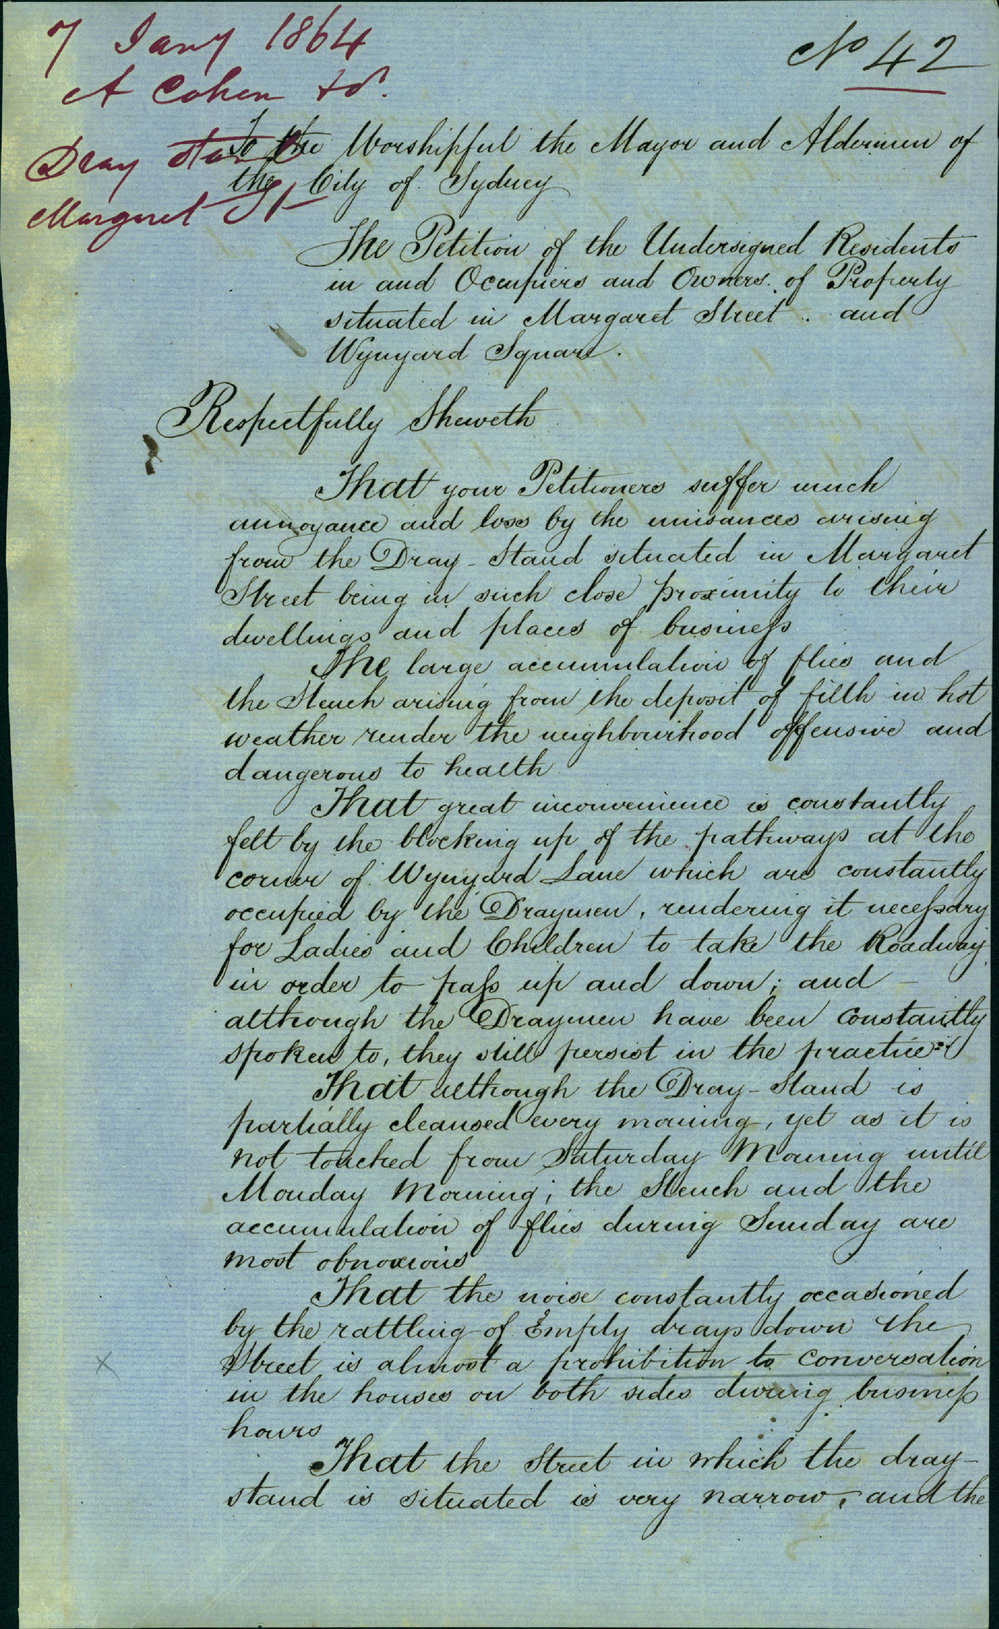 7 Jany 1864
No 42
A Cohen &ors.
Dray Stand
Margaret St
To the Worshipful the Mayor and Aldermen of
the City of Sydney
The Petition of the Undersigned Residents
in and Occupiers and Owners of Property
situated in Margaret Street .. and
Wynyard Square.
Respectfully Sheweth
That your Petitioners suffer much
annoyance and loss by the nuisances arising
from the Dray-Stand situated in Margaret
Street being in such close proximity to their
dwellings and places of business
The large accumulation of flies and
the Stench arising from the deposit of filth in hot
weather render the neighbourhood offensive and
dangerous to health
That great inconvenience is constantly
felt by the blocking up of the pathways at the
corner of Wynyard Lane which are constantly
occupied by the Draymen, rendering it necessary
for Ladies and Children to take the Roadway
in order to pass up and down; and
although the Draymen have been constantly
spoken to, they still persist in the practice:
That although the Dray-Stand is
partially cleansed every morning, yet as it is
not touched from Saturday Morning until
Monday Morning; the Stench and the
accumulation of flies during Sunday are
most obnoxious
That the noise constantly occasioned
by the rattling of Empty drays down the
Street is almost a prohibition to conversation
in the houses on both sides during business
hours
That the Street in which the dray-
stand is situated is very narrow, and the